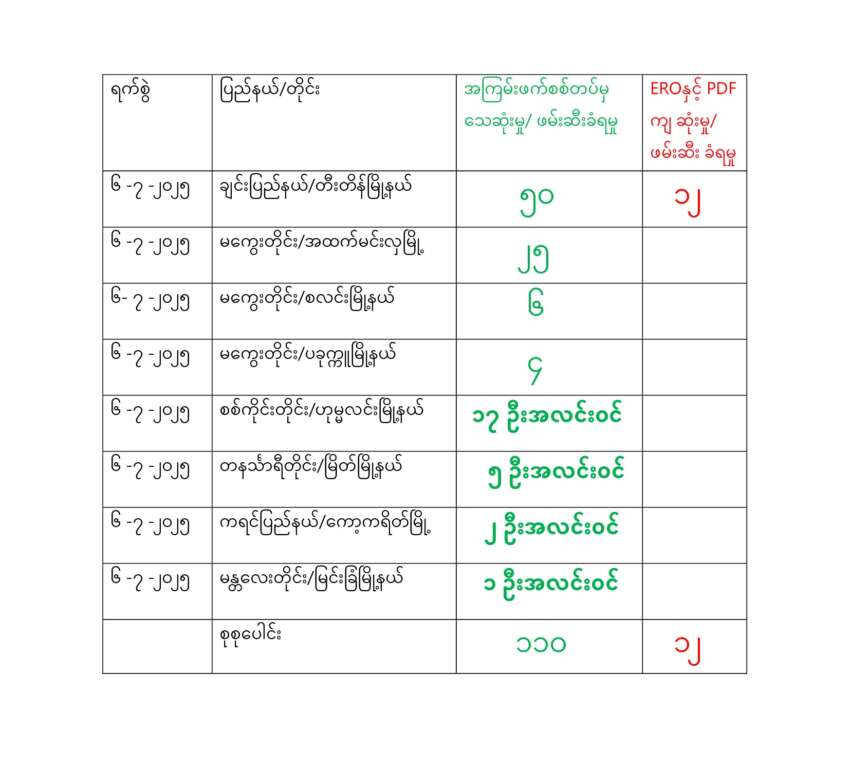 ရက်စွဲ
ပြည်နယ်/တိုင်း
အကြမ်းဖက်စစ်တပ်မှ
သေဆုံးမှု/ ဖမ်းဆီးခံရမှု
EROနှင့် PDF
ကျ ဆုံးမှု/
ဖမ်းဆီး ခံရမှု
၆ -၇ -၂၀၂၅
ချင်းပြည်နယ်/တီးတိန်မြို့နယ်
၅၀
၁၂
၆ -၇ -၂၀၂၅
မကွေးတိုင်း/အထက်မင်းလှမြို့
၂၅
၆- ၇ -၂၀၂၅
မကွေးတိုင်း/စလင်းမြို့နယ်
၆
၆ -၇ -၂၀၂၅
မကွေးတိုင်း/ပခုက္ကူမြို့နယ်
၄
၆ -၇ -၂၀၂၅
စစ်ကိုင်းတိုင်း/ဟုမ္မလင်းမြို့နယ်
၁၇ ဦးအလင်းဝင်
၆ -၇ -၂၀၂၅
တနင်္သာရီတိုင်း/မြိတ်မြို့နယ်
၅ ဦးအလင်းဝင်
၆ -၇ -၂၀၂၅
ကရင်ပြည်နယ်/ကော့ကရိတ်မြို့
၂ ဦးအလင်းဝင်
၆ -၇ -၂၀၂၅
မန္တလေးတိုင်း/မြင်းခြံမြို့နယ်
၁ ဦးအလင်းဝင်
စုစုပေါင်း
၁၁၀
၁၂